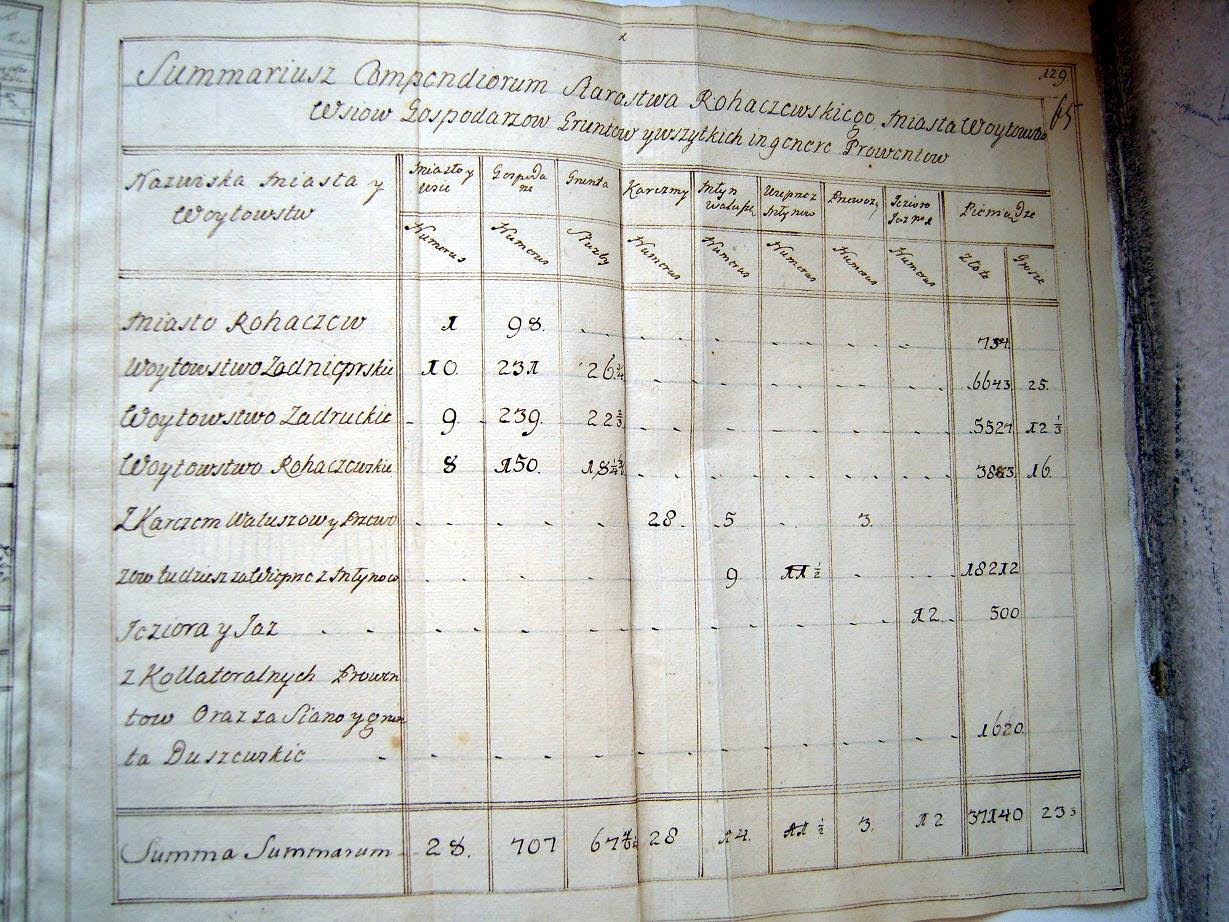 129
65
Summariusz Compendiorum Starostwa Rohaczewskiego Miasta Woytowstw
Wsiow Gospodarzow Gruntow y wszytkich in genere Prowentow
Nazwiska Miasta y Woytowstw | Miasto y Wsie | Gospodarze | Grunta | Karczmy | Młyn | Przewozy | Jezioro | Pieniądze
Numerus | Numerus | Służby | Numerus | Numerus | Numerus | Numerus | Numerus | Złote | Grosze
Miasto Rohaczew 1 98. 734.
Woytowstwo Zadnieprskie 10. 231 26 6643. 25.
Woytowstwo Zadruckie 9. 239. 22 2/3 5527 12 1/3
Woytowstwo Rohaczewskie 8 150. 18 16.
Z Karczem Wałuszow y Przewo 28. 5 3.
zow tudziesz za Wieprze z Młynow 9. 11 1/2 18212
Jeziora y Jaz 12. 500
z Kollateralnych Prowen
tow Oraz za Siano y grun 1620
ta Duszewskie
Summa Summarum 28. 707 67 28 14. 11 1/2 3. 12 37140 23